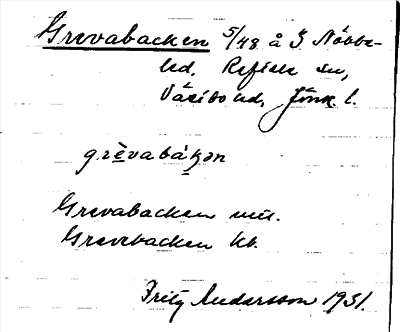 Grevabacken 5/48 å S Nöbbe-
led, Reftele sn,
Västbo hd, Jönk l.
grèvabákən
Grevabacken mtl.
Grevebacken kb.
Fritz Andersson 1931.